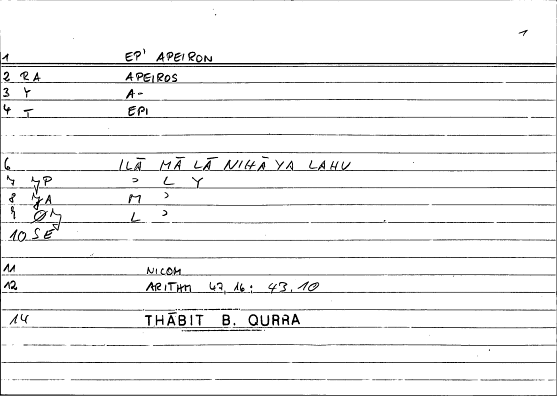 1
1 EP' APEIRON
2 RA APEIROS
3 Y A-
4 T EPI
6 ILĀ MĀ LĀ NIHĀYA LAHU
7 YP ʾ L Y
8 YA M ʾ
9 L ʾ
10 SE
11 NICOM
12 ARITHM 47,16: 43,10
14 THĀBIT B. QURRA